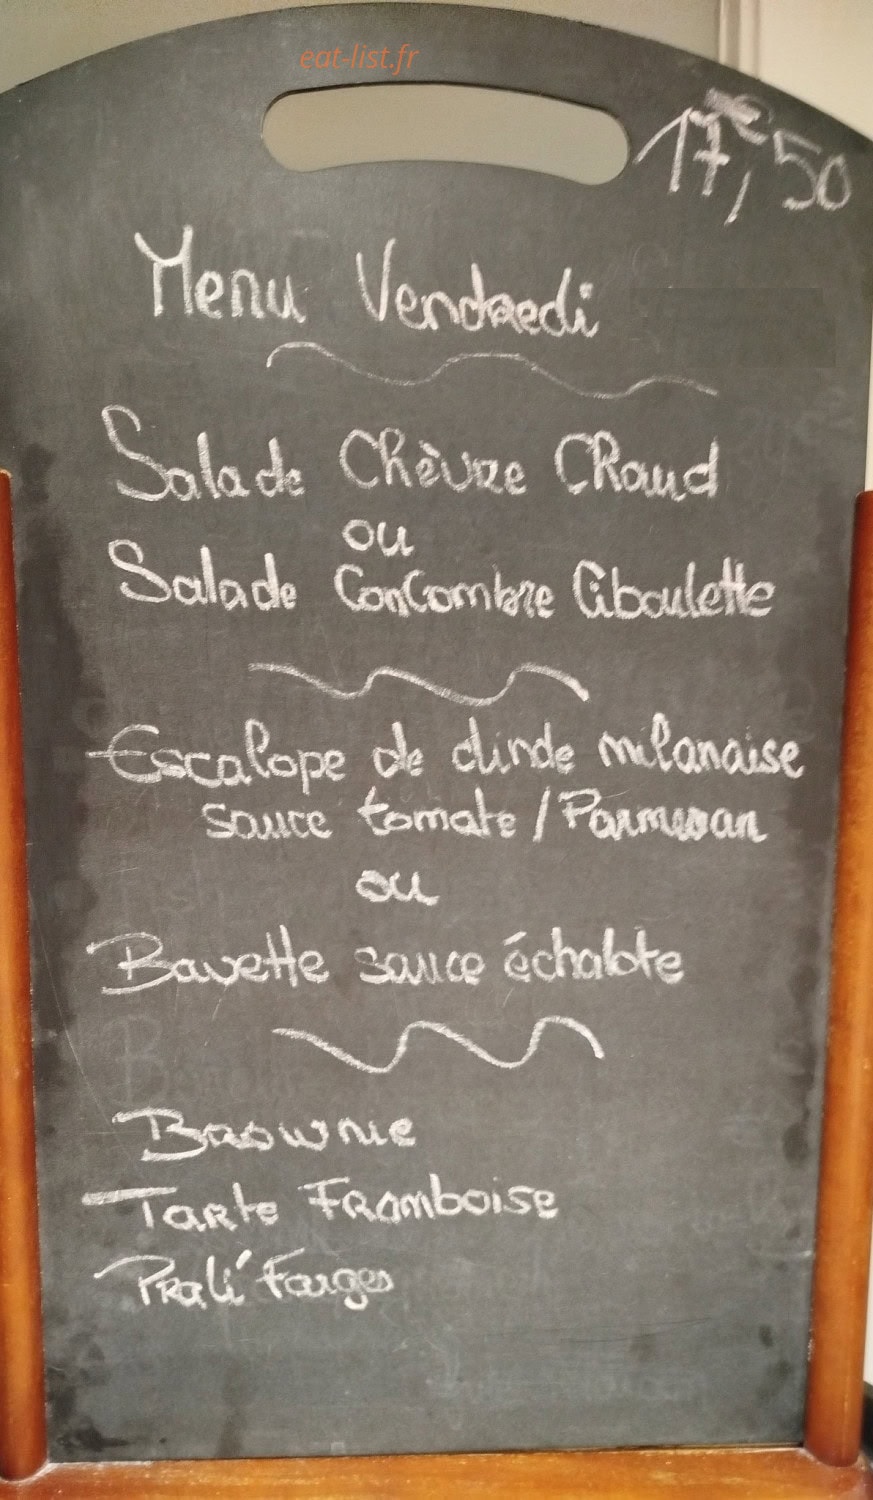 eat-list.fr
17€,50
Menu Vendredi
Salade Chèvre Chaud
ou
Salade Concombre Ciboulette
Escalope de dinde milanaise
sauce tomate / Parmesan
ou
Bavette sauce échalote
Brownie
Tarte Framboise
Prali' Farges